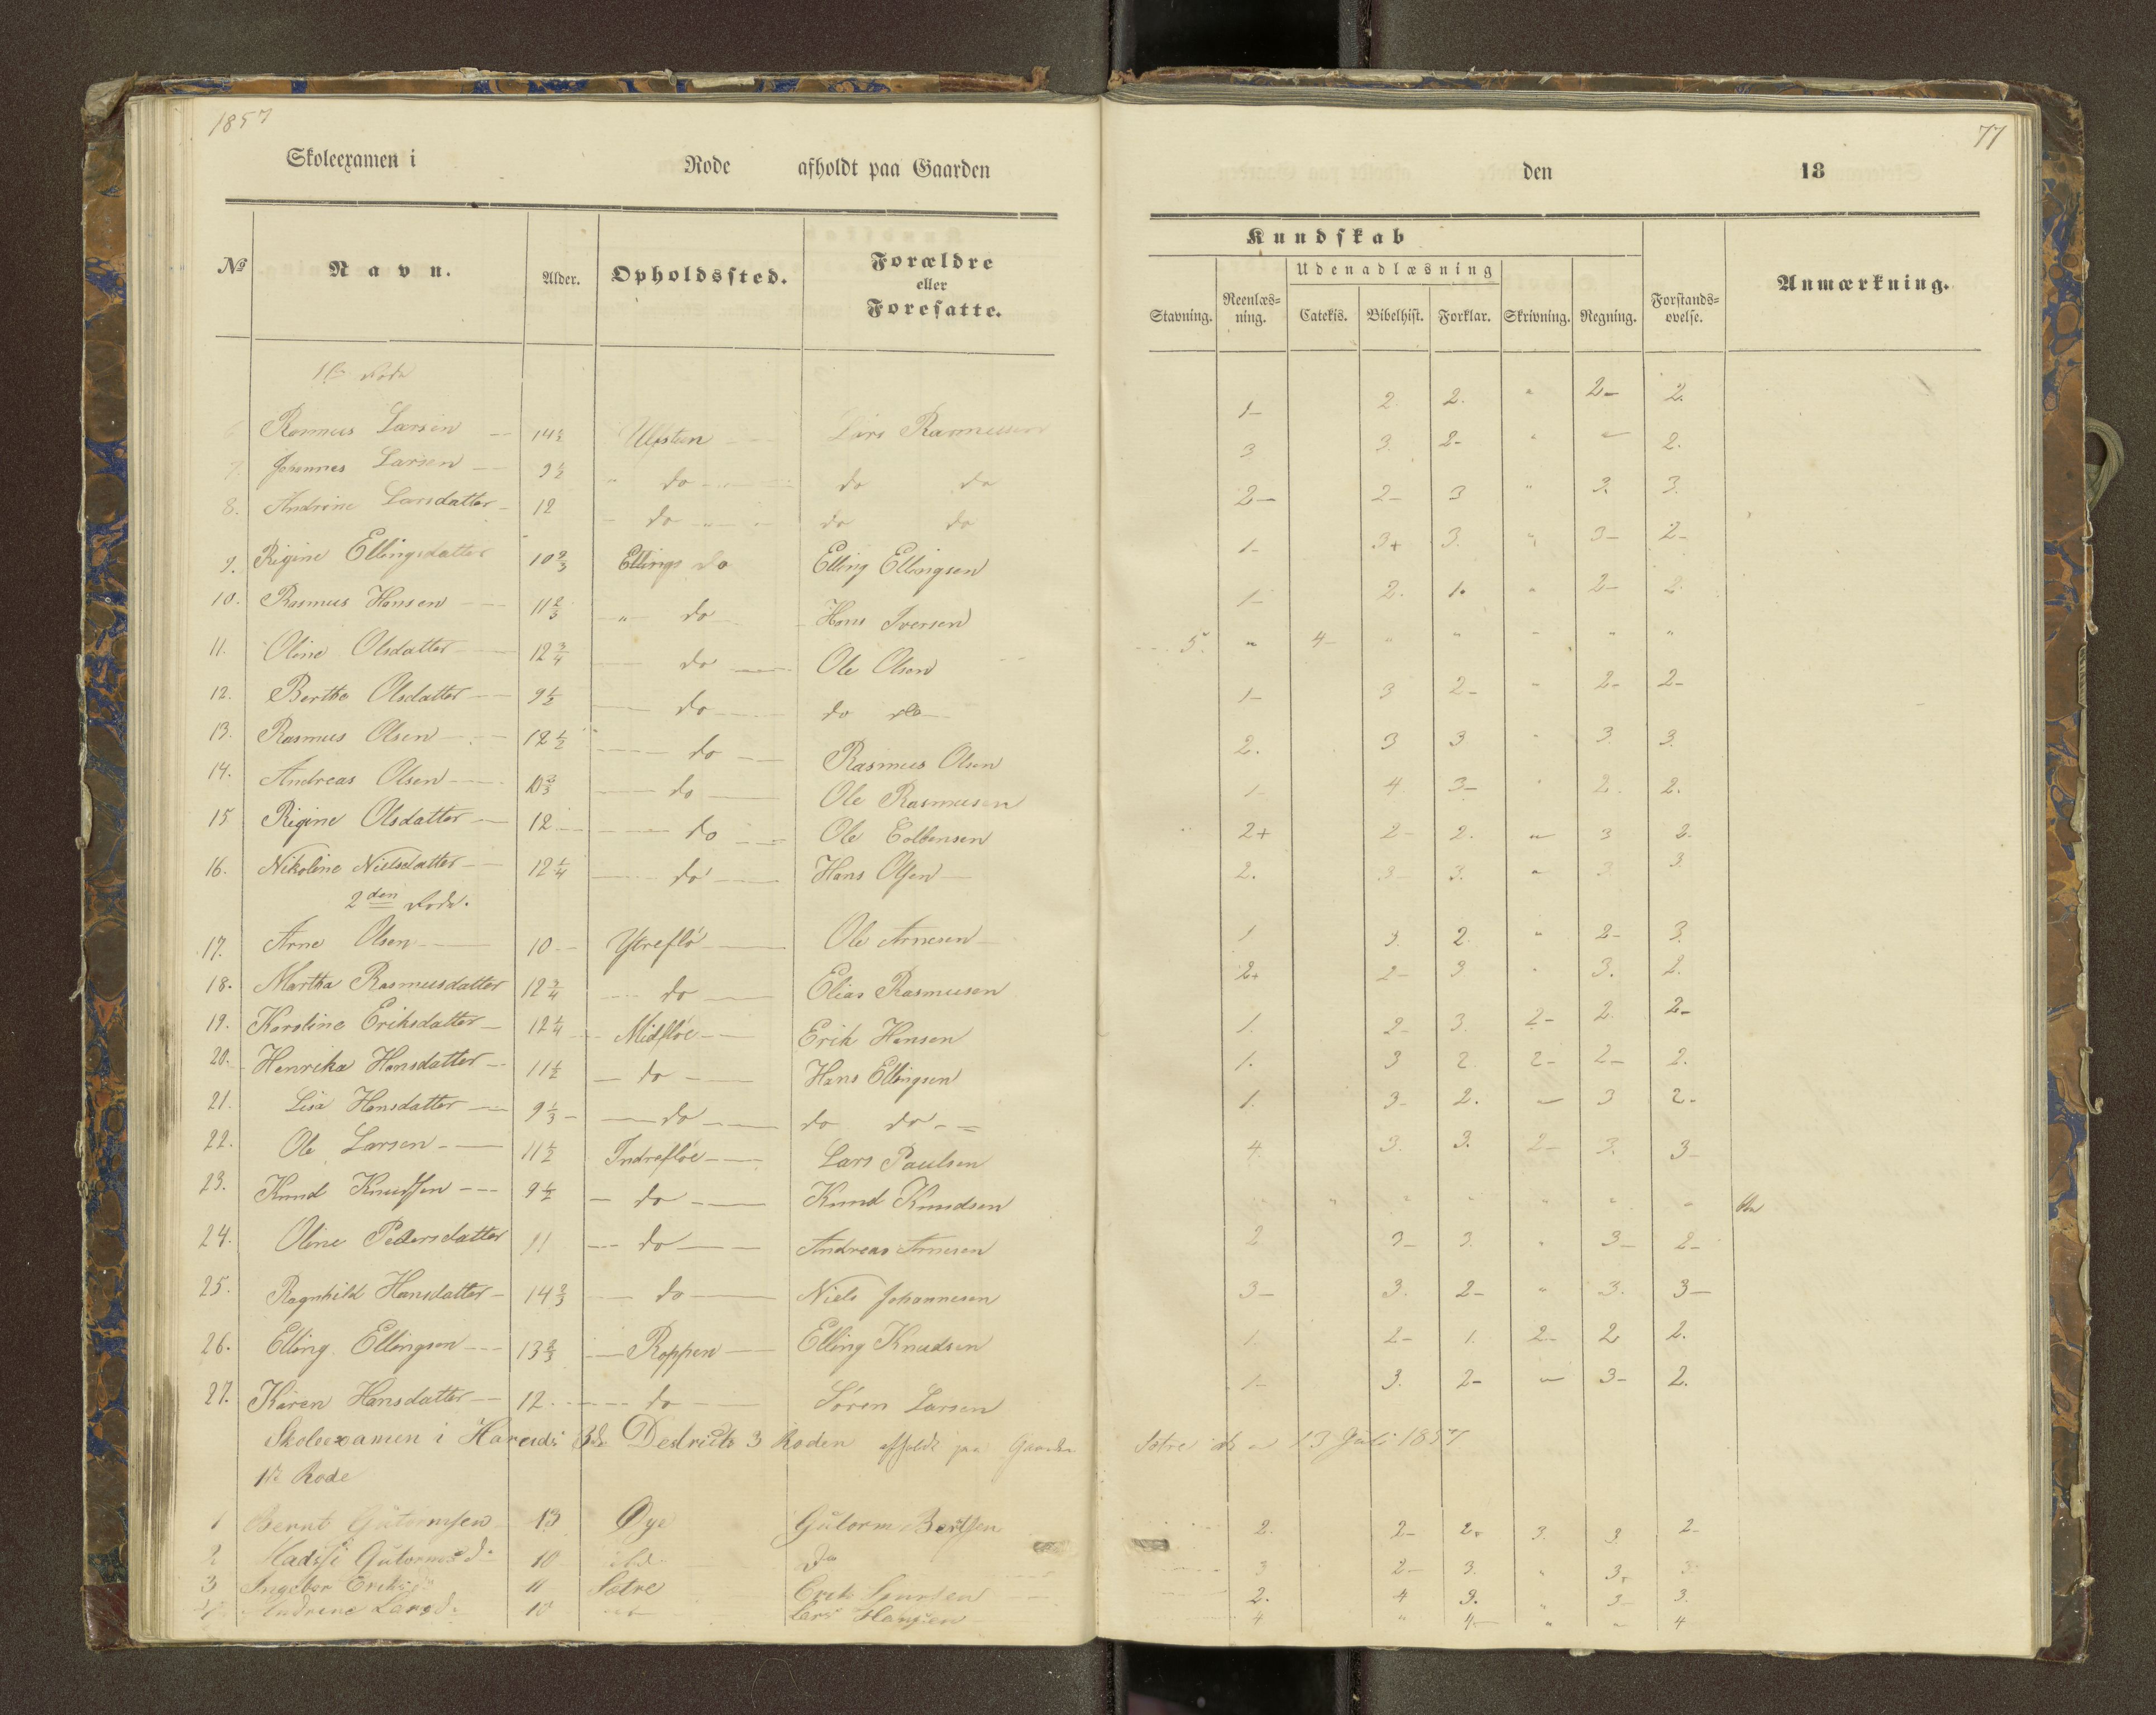 1857
77
Skoleexamen i Rode afholdt paa Gaarden den 18
Kundskab
№ Navn. Alder. Opholdssted. Forældre eller Foresatte. Stavning. Reenlæs-ning. Udenadlæsning Catekis. Bibelhist. Forklar. Skrivning. Regning. Forstands-øvelse. Anmærkning.
1ste Rode
Rasmus Larsen 14½ Ulfsten Lars Rasmusen 1- 2. 2. " 2- 2.
7. Johannes Larsen 9½ " do do do 3 3. 2- " " 2.
8. Andrine Larsdatter 12 do do do 2- 2- 3 " 3. 3.
9. Rigine Ellingsdatter 10⅔ Ellings do Elling Ellingsen 1- 3+ 3. " 3- 2-
10. Rasmus Hansen 11⅔ " do Hans Iversen 1- 2. 1. " 2- 2.
11. Oline Olsdatter 12¾ do Ole Olsen 5. " 4- " " " " "
12. Berthe Olsdatter 9½ do do do 1- 3 2- " 2- 2-
13. Rasmus Olsen 12½ do Rasmus Olsen 2. 3 3 " 3 3.
14. Andreas Olsen 10⅔ do Ole Rasmusen 1- 4. 3- " 2. 2.
15 Rigine Olsdatter 12 do Ole 2+ 2- 2. " 3 2.
16. Nikoline Nielsdatter 12¼ do Hans Olsen 2. 3- 3. " 3. 3
2den Rode.
17. Arne Olsen 10 Ytreflö Ole Arnesen 1 3. 2. " 2- 3.
18. Martha Rasmusdatter 12¾ do Elias Rasmusen 2+ 2- 3 " 3. 2.
19. Karoline Eriksdatter 12¼ Midflöe Erik Hansen 1. 2- 3. 2- 2. 2-
20. Henrika Hansdatter 11½ do Hans Ellingsen 1. 3 2. 2- 2- 2.
21. Lisa Hansdatter 9⅓ do do do 1. 3- 2. " 3 2-
22. Ole Larsen 11½ Indreflöe Lars Paulsen 4 3. 3. 2- 3. 3-
23. Knud Knudsen 9½ do Knud Knudsen " " " " " " "
24. Oline Pedersdatter 11 do Andreas Arnesen 2 3- 3. " 3- 2-
25. Ragnhild Hansdatter 14⅔ do Niels Johannesen 3- 3. 2- " 3. 3-
26. Elling Ellingsen 13⅔ Roppen Elling Knudsen 1. 2- 1. 2- 2 2.
27. Karen Hansdatter 12 do Sören Larsen 1- 3. 2- " 3- 2.
Skoleexamen i Hareids 3de Destricts 3 Roden afholdt paa Gaarden Sætre den 13 Juli 1857
1ste Rode
1 Bernt Gutormsen 13 Øye Gutorm Bertsen 2. 2- 2+ 3. 3. 2-
2 Gutormsd: 10 ibd. do 3 2- 3. " 3+ 3
3 Ingebor Eriksd: 11 Sætre Erik 2. 4 3. " 3- 3.
4 Andrine Larsd: 10 Lars Hansen 4 " 4- " " 4